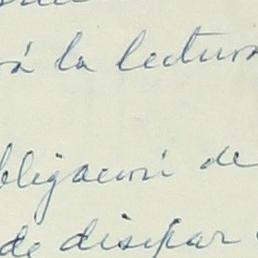 rá la lectura
bligación de
de disipar